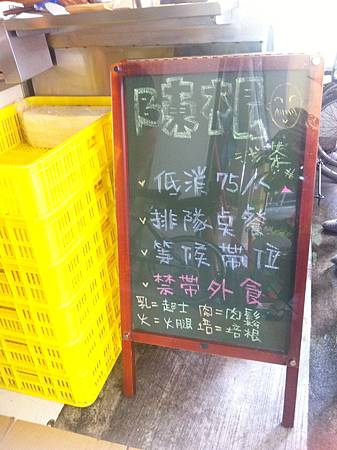 陳根
冰茶
低消75/人
排隊桌餐
等候帶位
禁帶外食
乳=起士 肉=肉鬆
火=火腿 培=培根